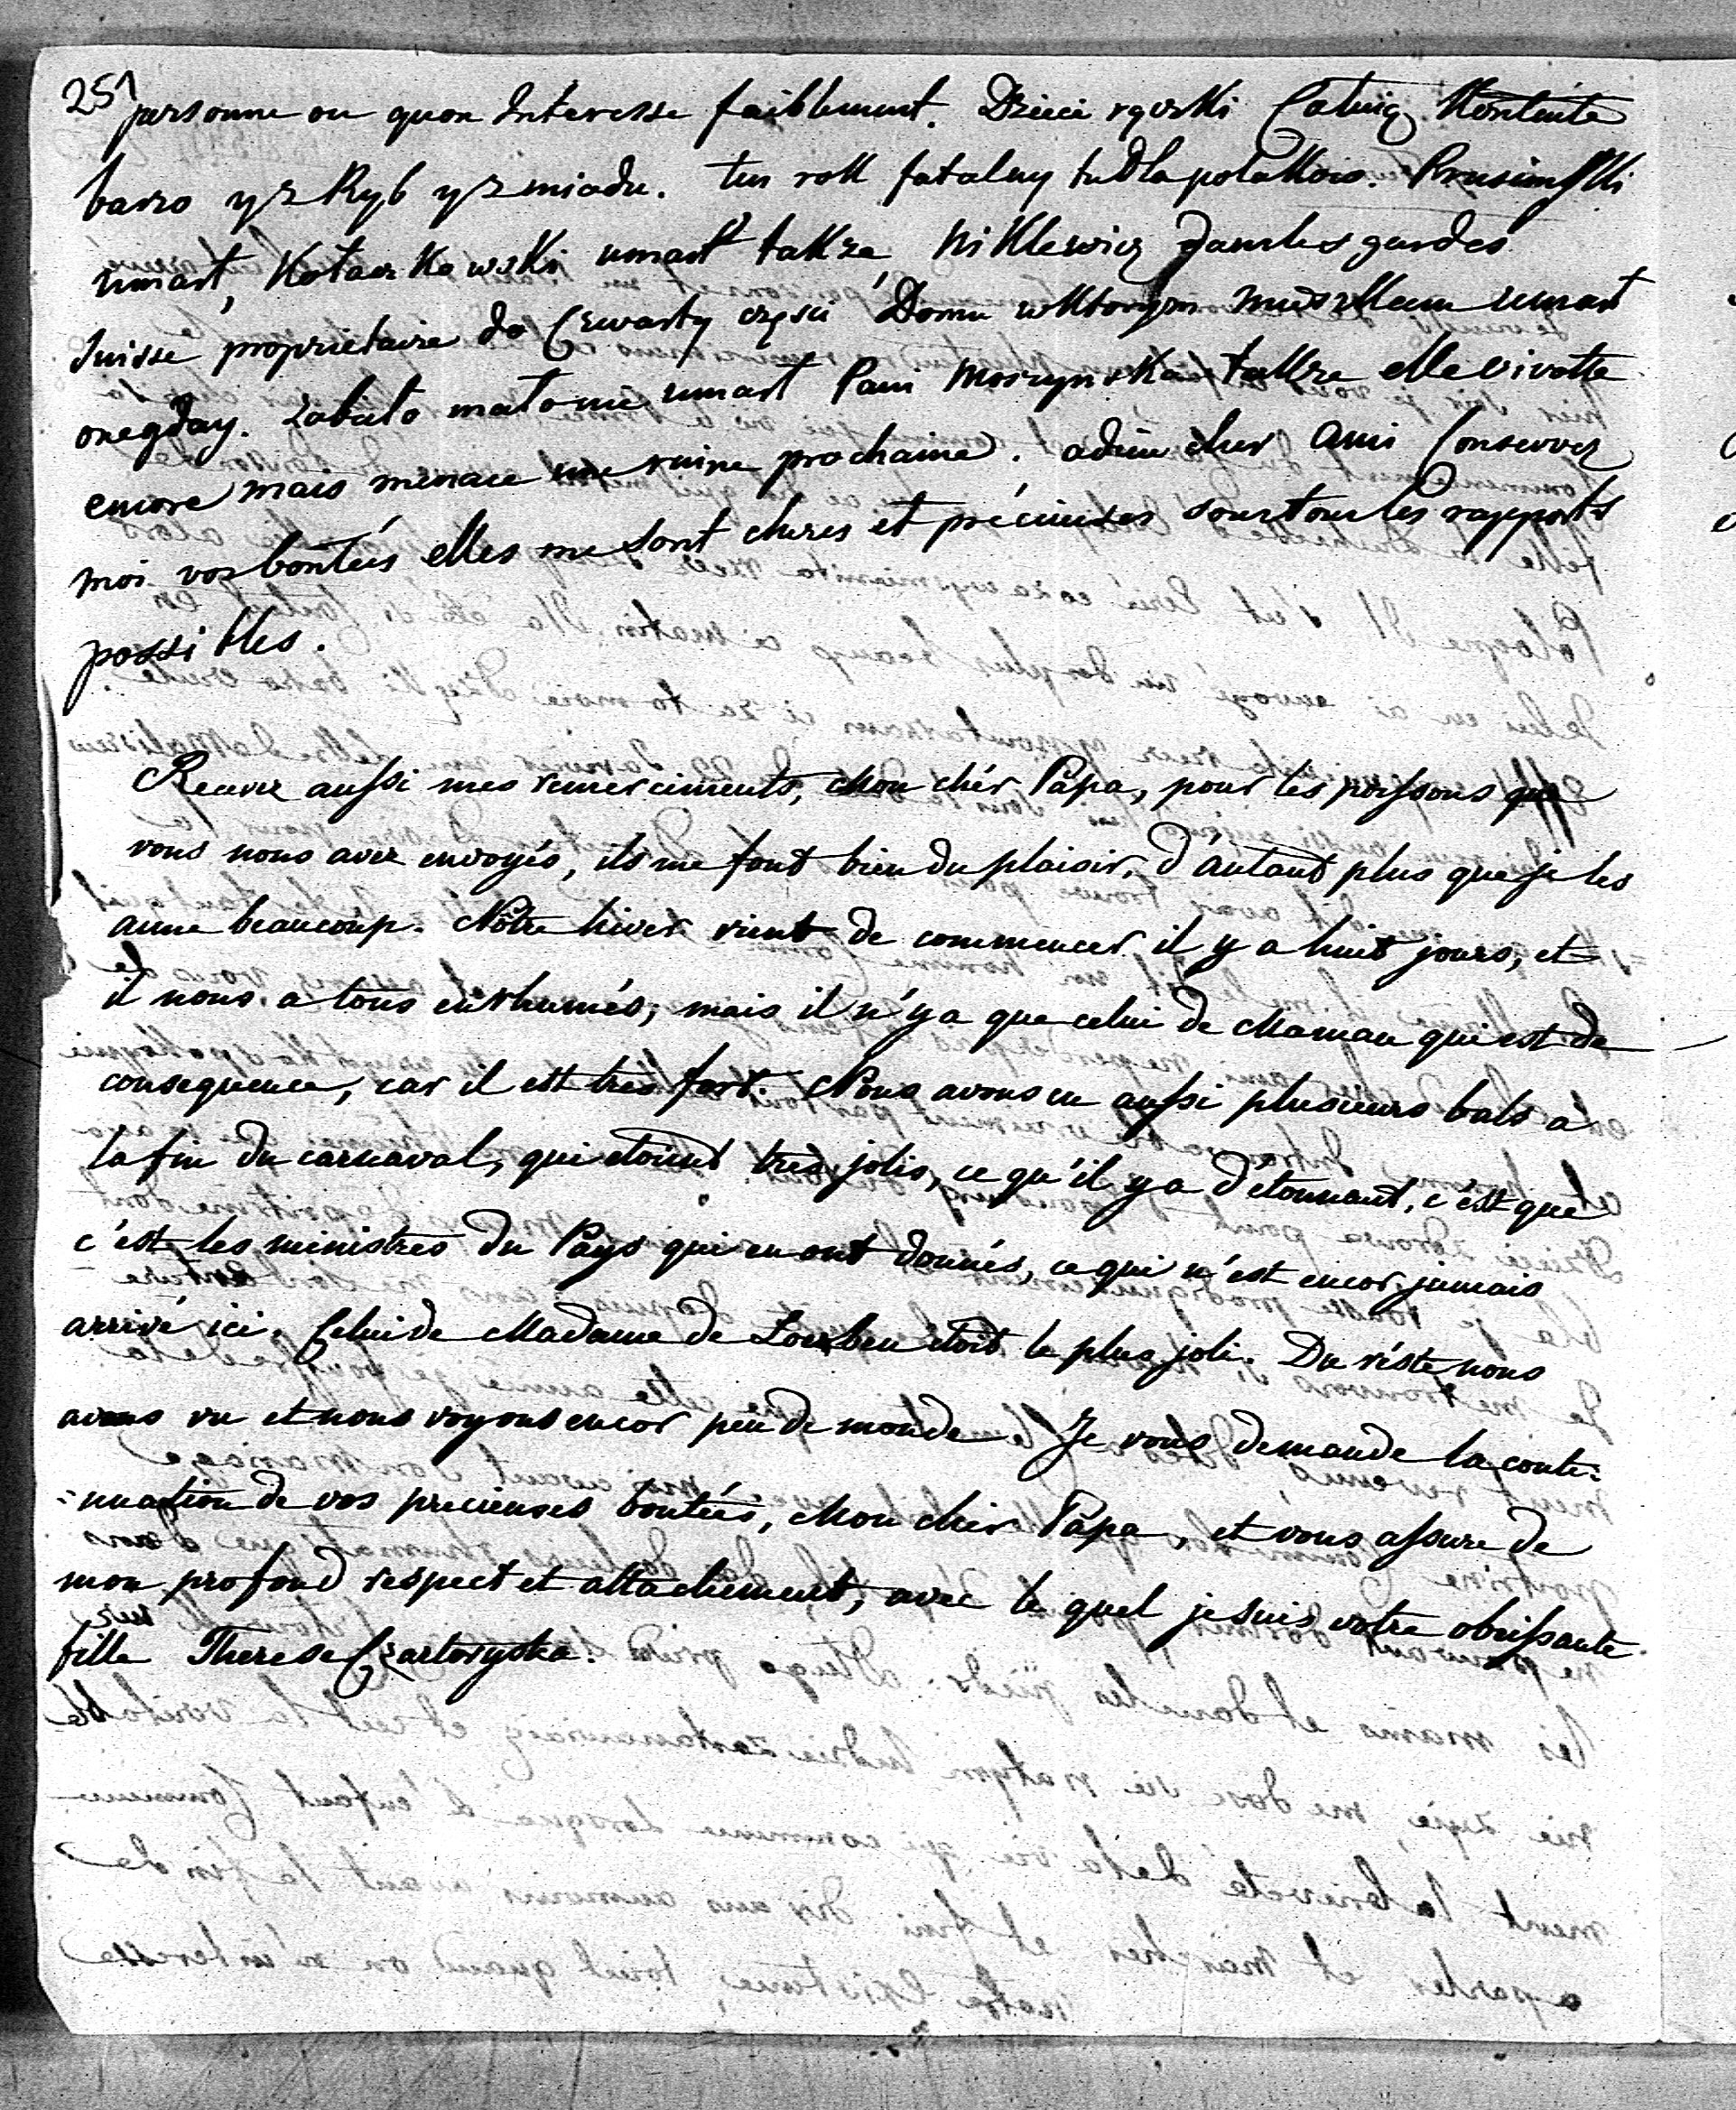 251
personne ou quon Interesse faiblement. Dzieci rączki Całuią Kontente
barzo y z Ryb y z miodu. ten rok fatalny tu dla polakow. Prusimski
umarł, Kołaczkowski umarł także Niklewicz dans les gardes
suisse proprietaire do Czwarty części Domu w ktorym mieszkam umarł
onegday. Zabiło mało nie umarł Pani Moszynska także elle vivotte
encore mais menace une ruine prochaine. adieu cher Ami Conservez
moi vos bontées elles me sont cheres et précieuses sour tour les rapports
possibles.
Recevez aussi mes remerciments, Mon chér Papa, pour les poissons que
vous nous avez envoyés, ils me font bien du plaisir, d'autant plus que je les
aime beaucoup. Nôtre hiver vient de commencer il y a huit jours, et
il nous a tous enrhumés; mais il n'y a que celui de Maman qui est de
consequence, car il est très fort. Nous avons eu aussi plusieurs bals a
la fin du carnaval, qui etoient très jolis, ce qu'il y a d'étonnant, c'est que
c'est les ministres du Pays qui en ont donnés, ce qui n'est encor jamais
arrivé ici. Celui de Madame de Loeben etoit le plus joli. Du réste nous
avons vu et nous voyons encor peu de monde. Je vous demande la conti-
-nuation de vos precieuses bontées, Mon cher Papa, et vous assure de
mon profond respect et attachement, avec le quel je suis votre obeissante
fille Therese Czartoryska.